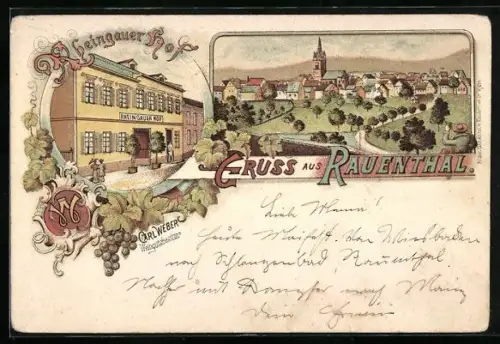 Rheingauer Hof
RHEINGAUER HOF
GRUSS AUS RAUENTHAL.
W
CARL WEBER
Weingutsbesitzer
Lieb Mama!
heute Maifest. Von Wiesbaden
nach Schlangenbad, Rauenthal
mit Dampfer nach Mainz
Dein Erwin